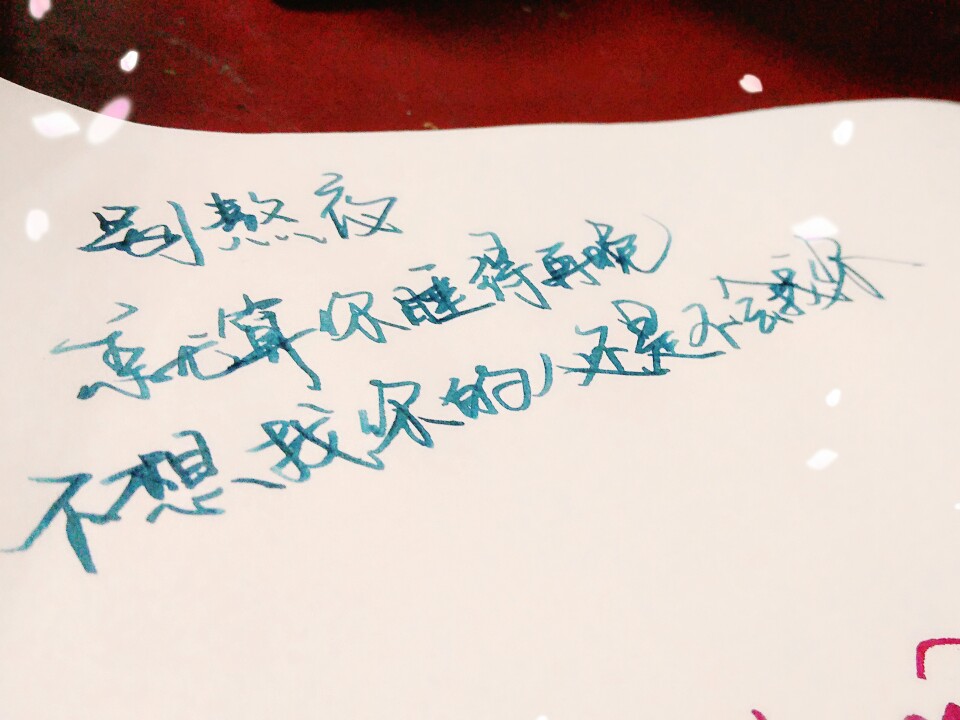 别熬夜
就算你睡得再晚
不想找你的人还是不会找你